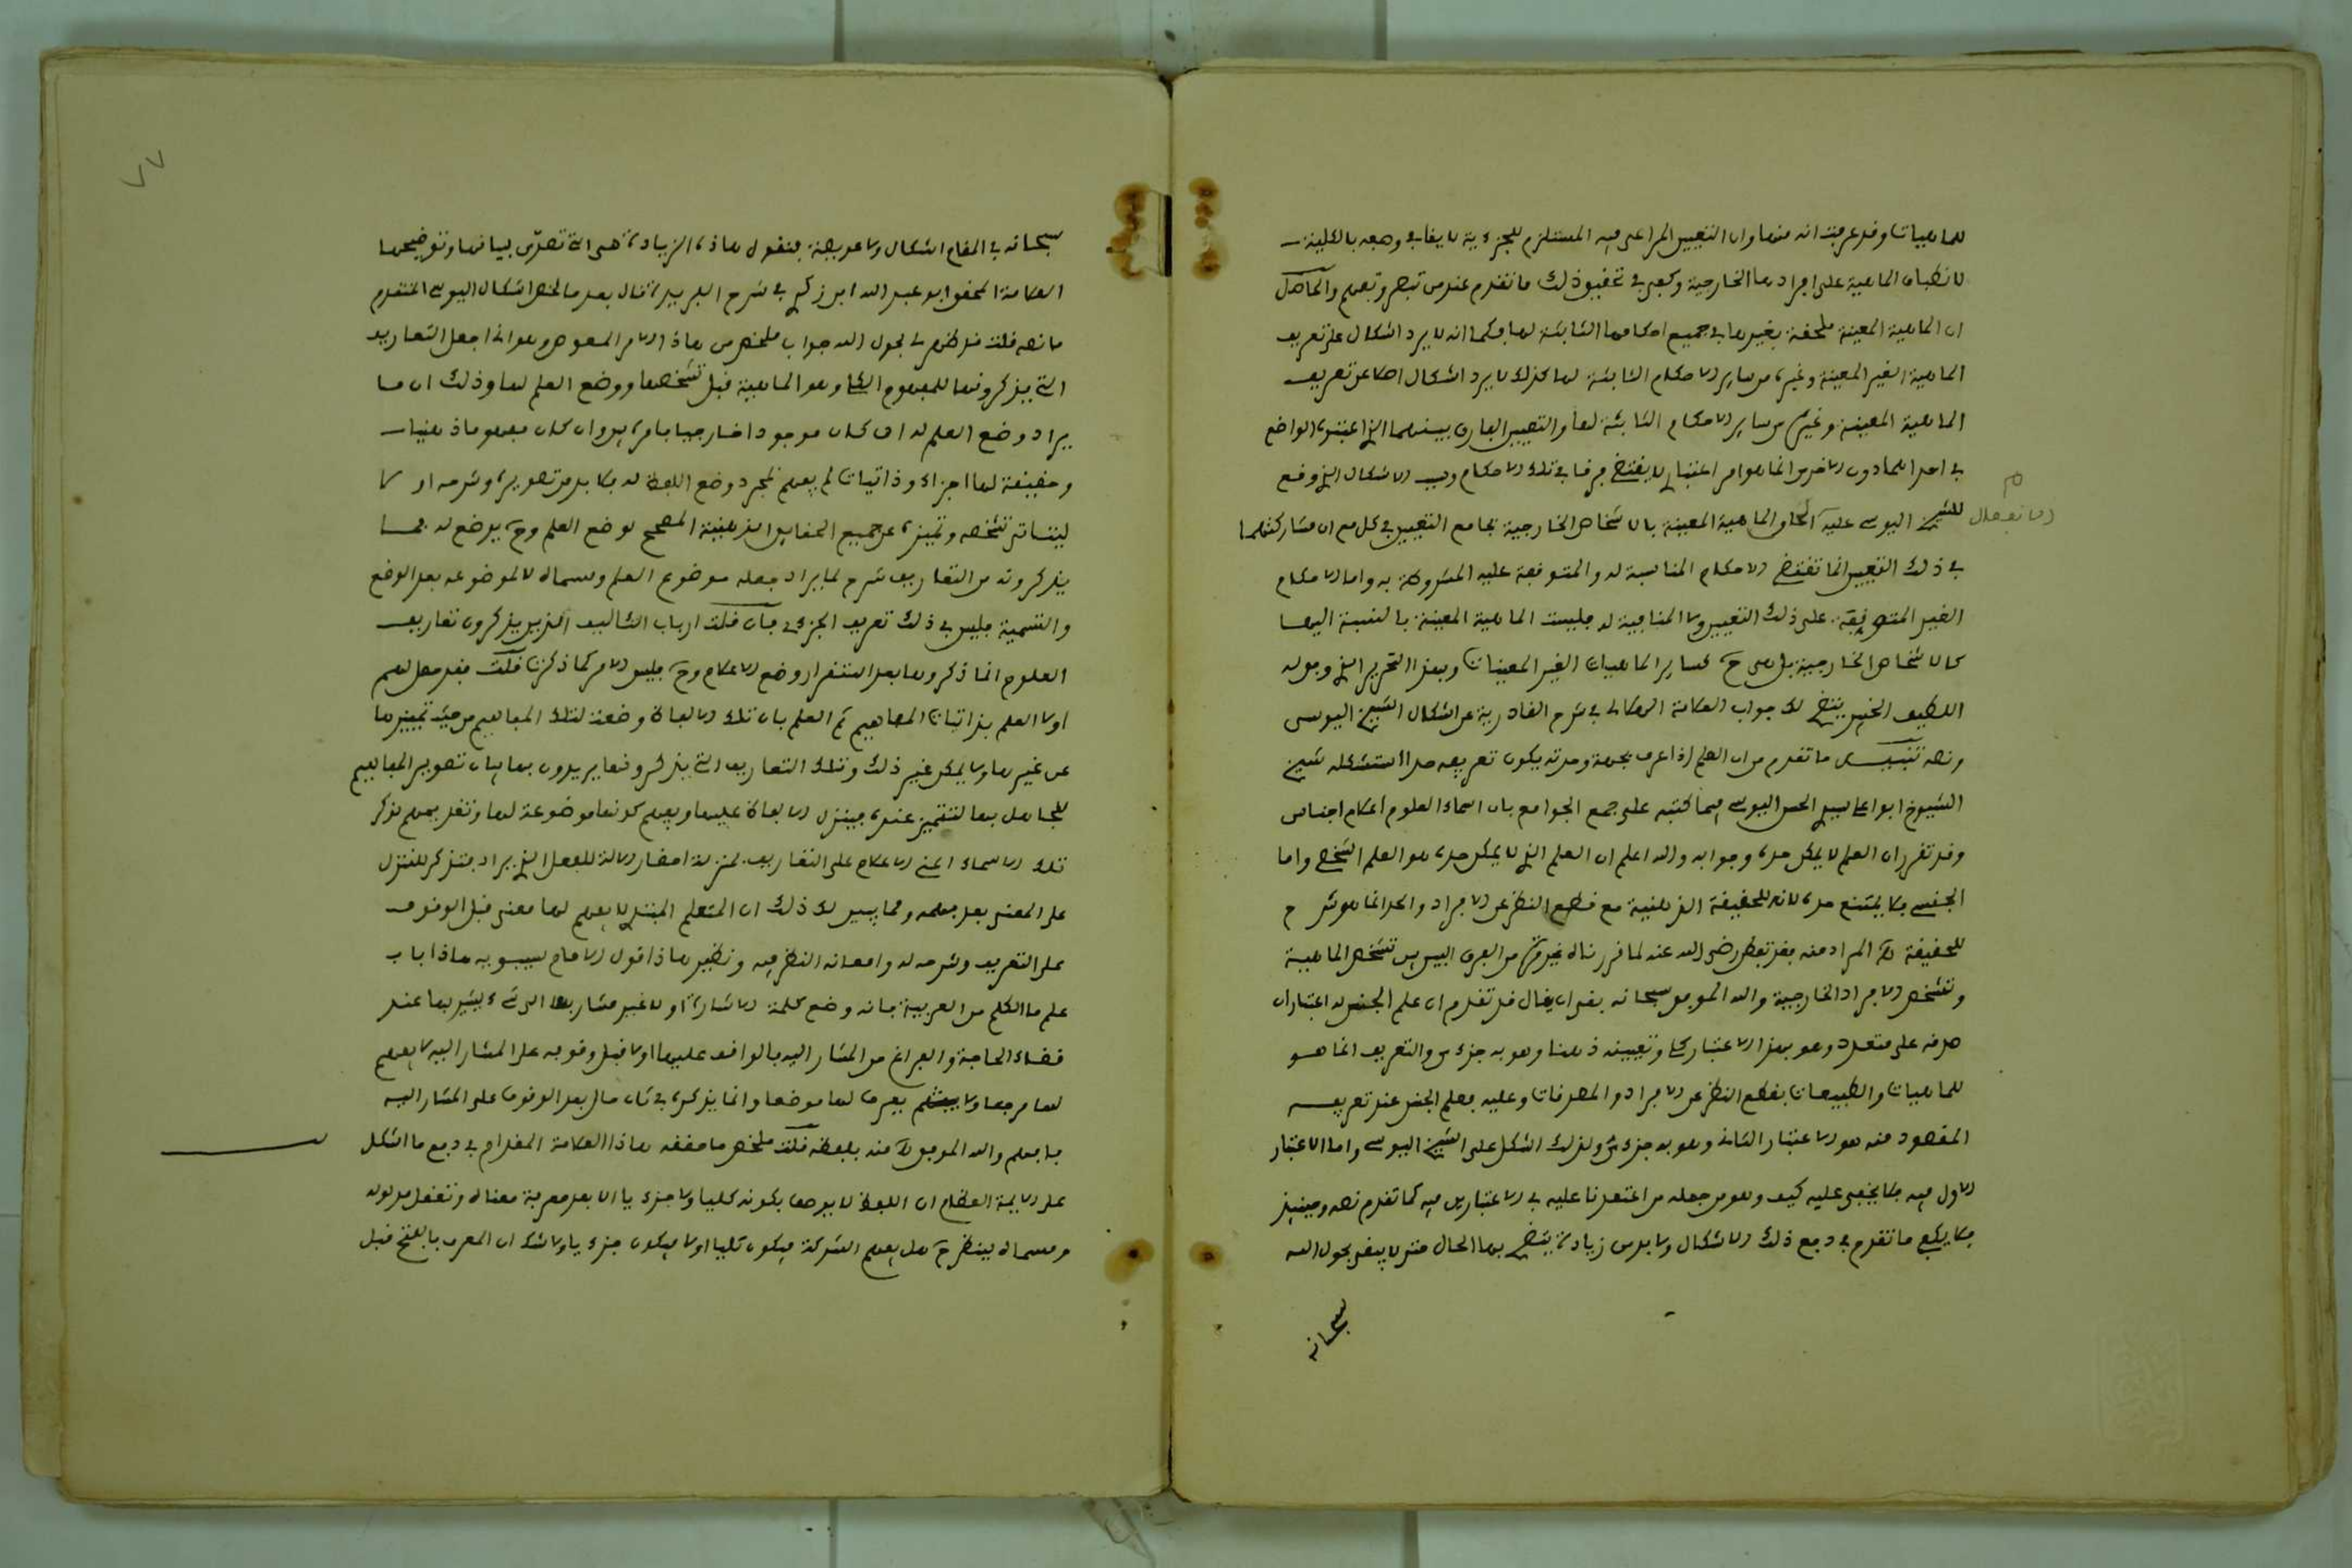 للماهيات وقد عرفت انه منها وان التعيين المراعى فيه المستلزم للجزءية لا ينافي وصفه بالكلية
لانطباق الماهية على افرادها الخارجية وكفى في تحقيق ذلك ما تقدم عند من تبصر وتفهم والحاصل
ان الماهية المعينة ملحقة بغيرها في جميع احكامها الثابتة لها فكما انه لا يرد اشكال على تعريف
الماهية الغير المعينة وغيره من ساير الاحكام الثابتة لها كذلك لا يرد اشكال اصلا عن تعريف
الماهية المعينة وغيره من ساير الاحكام الثابتة لها والتعيين الفارق بينهما الذي اعتبره الواضع
في احداهما دون الاخرى انما هو امر اعتباري لا يقتضي فرقا في تلك الاحكام وسبب الاشكال الذي وقع
للشيخ اليوسي عليه الحاق الماهية المعينة بالاشخاص الخارجية بجامع التعيين في كل مع ان مشاركتهما
في ذلك التعيين انما تقتضي الاحكام المناسبة له والمتوقفة عليه المشروطة به واما الاحكام
الغير المتوقفة على ذلك التعيين ولا المنافية له فليست الماهية المعينة بالنسبة اليها
كالاشخاص الخارجية بل هي ح كساير الماهيات الغير المعينات وبهذا التحرير الذي وهبه
اللطيف الخبير يتضح لك جواب العلامة الهلالي في شرح القادرية عن اشكال الشيخ اليوسي
ونصه تنبيه ما تقدم من ان العلم اذا عرف بجهة وحدته يكون تعريفه حدا استشكله شيخ
الشيوخ ابو علي سيدي الحسن اليوسي فيما كتبه على جمع الجوامع بان اسماء العلوم اعلام اجناس
وقد تقرر ان العلم لا يمكن حده وجوابه والله اعلم ان العلم الذي لا يمكن حده هو العلم الشخصي واما
الجنسي فلا يمتنع حده لانه للحقيقة الذهنية مع قطع النظر عن الافراد والحد انما هو شرح
للحقيقة المراد منه فقد تفطن رضى الله عنه لما قررناه غير مرة من الفرق البين بين تشخص الماهية
وتشخص الافراد الخارجية والله الموفق سبحانه بقي ان يقال قد تقدم ان علم الجنس له اعتباران
صدقه على متعدد وهو بهذا الاعتبار كلي وتعيينه ذهنا وهو به جزءي والتعريف انما هو
للماهيات والطبيعات بقطع النظر عن الافراد والمصدقات وعليه فعلم الجنس عند تعريفه
المقصود منه هو الاعتبار الثاني وهو به جزءي ولذلك اشكل على الشيخ اليوسي واما الاعتبار
الاول فيه فلا يخفى عليه كيف وهو من جملة من اعتمدنا عليه في الاعتبارين فيه كما تقدم نصه وحينئذ
فلا يكفي ما تقدم في دفع ذلك الاشكال ولا بد من زيادة يتضح بها الحال حتى لا يبقى بحول الله
سبحانه
سبحانه في المقام اشكال ولا عويصة فنقول هاذه الزيادة هي التي تصدى لبيانها وتوضيحها
العلامة المحقق ابو عبد الله ابن زكري في شرح الفريدة قال بعد ما لخص اشكال اليوسي المتقدم
ما نصه قلت قد ظهر لي بحول الله جواب ملخص من هاذا الامر المعوص وهو انا نجعل التعاريف
التي يذكرونها للمفهوم الكلي وهو الماهية قبل تشخصها ووضع العلم لها وذلك ان ما
يراد وضع العلم له ان كان موجودا خارجيا فامره بين وان كان مفهوما ذهنيا
وحقيقة لها اجزاء وذاتيات لم يفهم بمجرد وضع اللفظ له فلا بد من تصويره وشرحه اولا
ليتأتى تشخصه وتميزه عن جميع الحقايق الذهنية المصحح لوضع العلم وح يوضع له فما
يذكرونه من التعاريف شرح لما يراد جعله موضوع العلم ومسماه لا لموضوعه بعد الوضع
والتسمية فليس في ذلك تعريف الجزءي فان قلت ارباب التئاليف الذين يذكرون تعاريف
العلوم انما ذكروها بعد استقرار وضع الاعلام وح فليس الامر كما ذكرت قلت فقد حصل لهم
اولا العلم بذاتيات المفاهيم ثم العلم بان تلك الالفاظ وضعت لتلك المفاهيم من حيث تميزها
عن غيرها ولا يمكن غير ذلك وتلك التعاريف التي يذكرونها يريدون بها بيان تصوير المفاهيم
للجاهل بها لتتميز عنده فينزل الالفاظ عليها ويفهم كونها موضوعة لها وتقديمهم لذكر
تلك الاسماء اعني الاعلام على التعاريف بمنزلة احضار الالة للفعل الذي يراد فتذكر للتنزل
على المعنى بعد فهمه ومما يبين لك ذلك ان المتعلم المبتدي لا يفهم لها معنى قبل الوقوف
على التعريف وشرحه له وامعانه النظر فيه ونظير هاذا قول الامام سيبويه هاذا باب
علم ما الكلم من العربية فانه وضع كلمة الاشارة اولا غير مشار بها الى شيء ليشير بها عند
قضاء الحاجة والفراغ من المشار اليه فالواقف عليها اولا قبل وقوفه على المشار اليه لا يفهم
لها مرجعا ولا يعرف لها موضعا وانما يذكره في ثاني حال بعد الوقوف على المشار اليه
فافهم والله الموفق منه بلفظه قلت ملخص ما حققه هاذا العلامة المقدام في دفع ما اشكل
على الايمة العظام ان اللفظ لا يوصف بكونه كليا ولا جزءيا الا بعد معرفة معناه وتعقل مدلوله
ومسماه لينظر ح هل يفهم الشركة فيكون كليا اولا فيكون جزءيا ولا شك ان المعرف بالفتح قبل